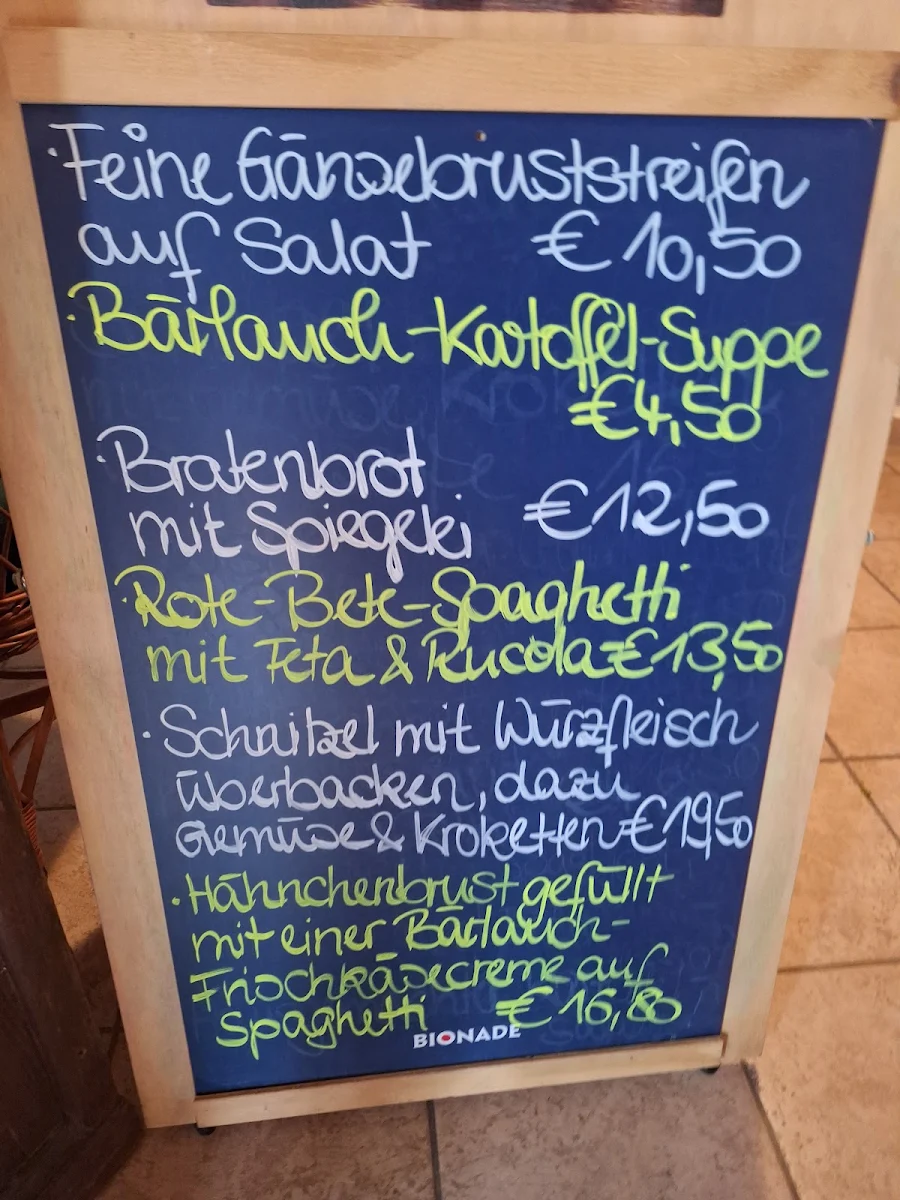 · Feine Gänsebruststreifen
auf Salat € 10,50
· Bärlauch-Kartoffel-Suppe
€ 4,50
· Bratenbrot
mit Spiegelei € 12,50
· Rote-Bete-Spaghetti
mit Feta & Rucola € 13,50
· Schnitzel mit Würzfleisch
überbacken, dazu
Gemüse & Kroketten € 19,50
· Hähnchenbrust gefüllt
mit einer Bärlauch-
Frischkäsecreme auf
Spaghetti € 16,80
BIONADE